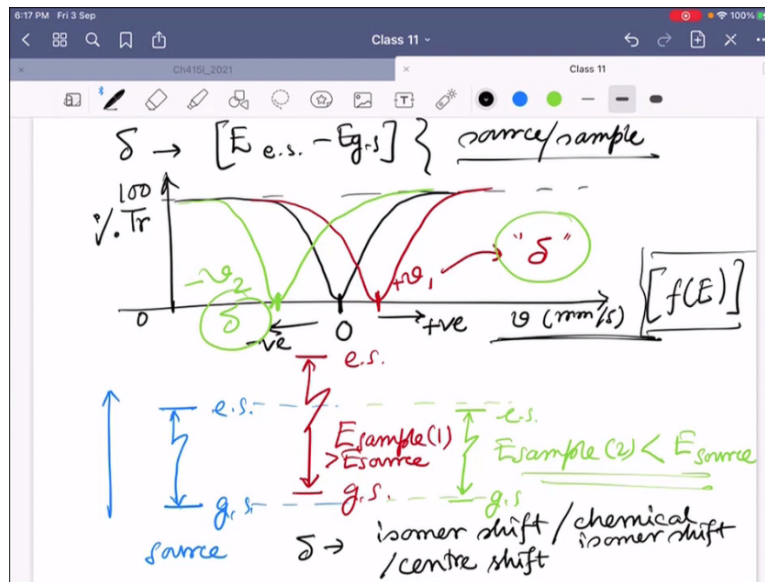 6:17 PM Fri 3 Sep
100%
Class 11
Ch415I_2021
Class 11
δ → [E e.s. - Eg.s] } source/sample
100
%. Tr
-ν₂
+ν₁
"δ"
[f(E)]
0
δ
-ve
0
+ve
ν (mm/s)
e.s.
e.s.
e.s.
Esample(1)
>Esource
Esample(2) < Esource
g.s.
g.s.
g.s
source
δ → isomer shift / chemical isomer shift
/centre shift